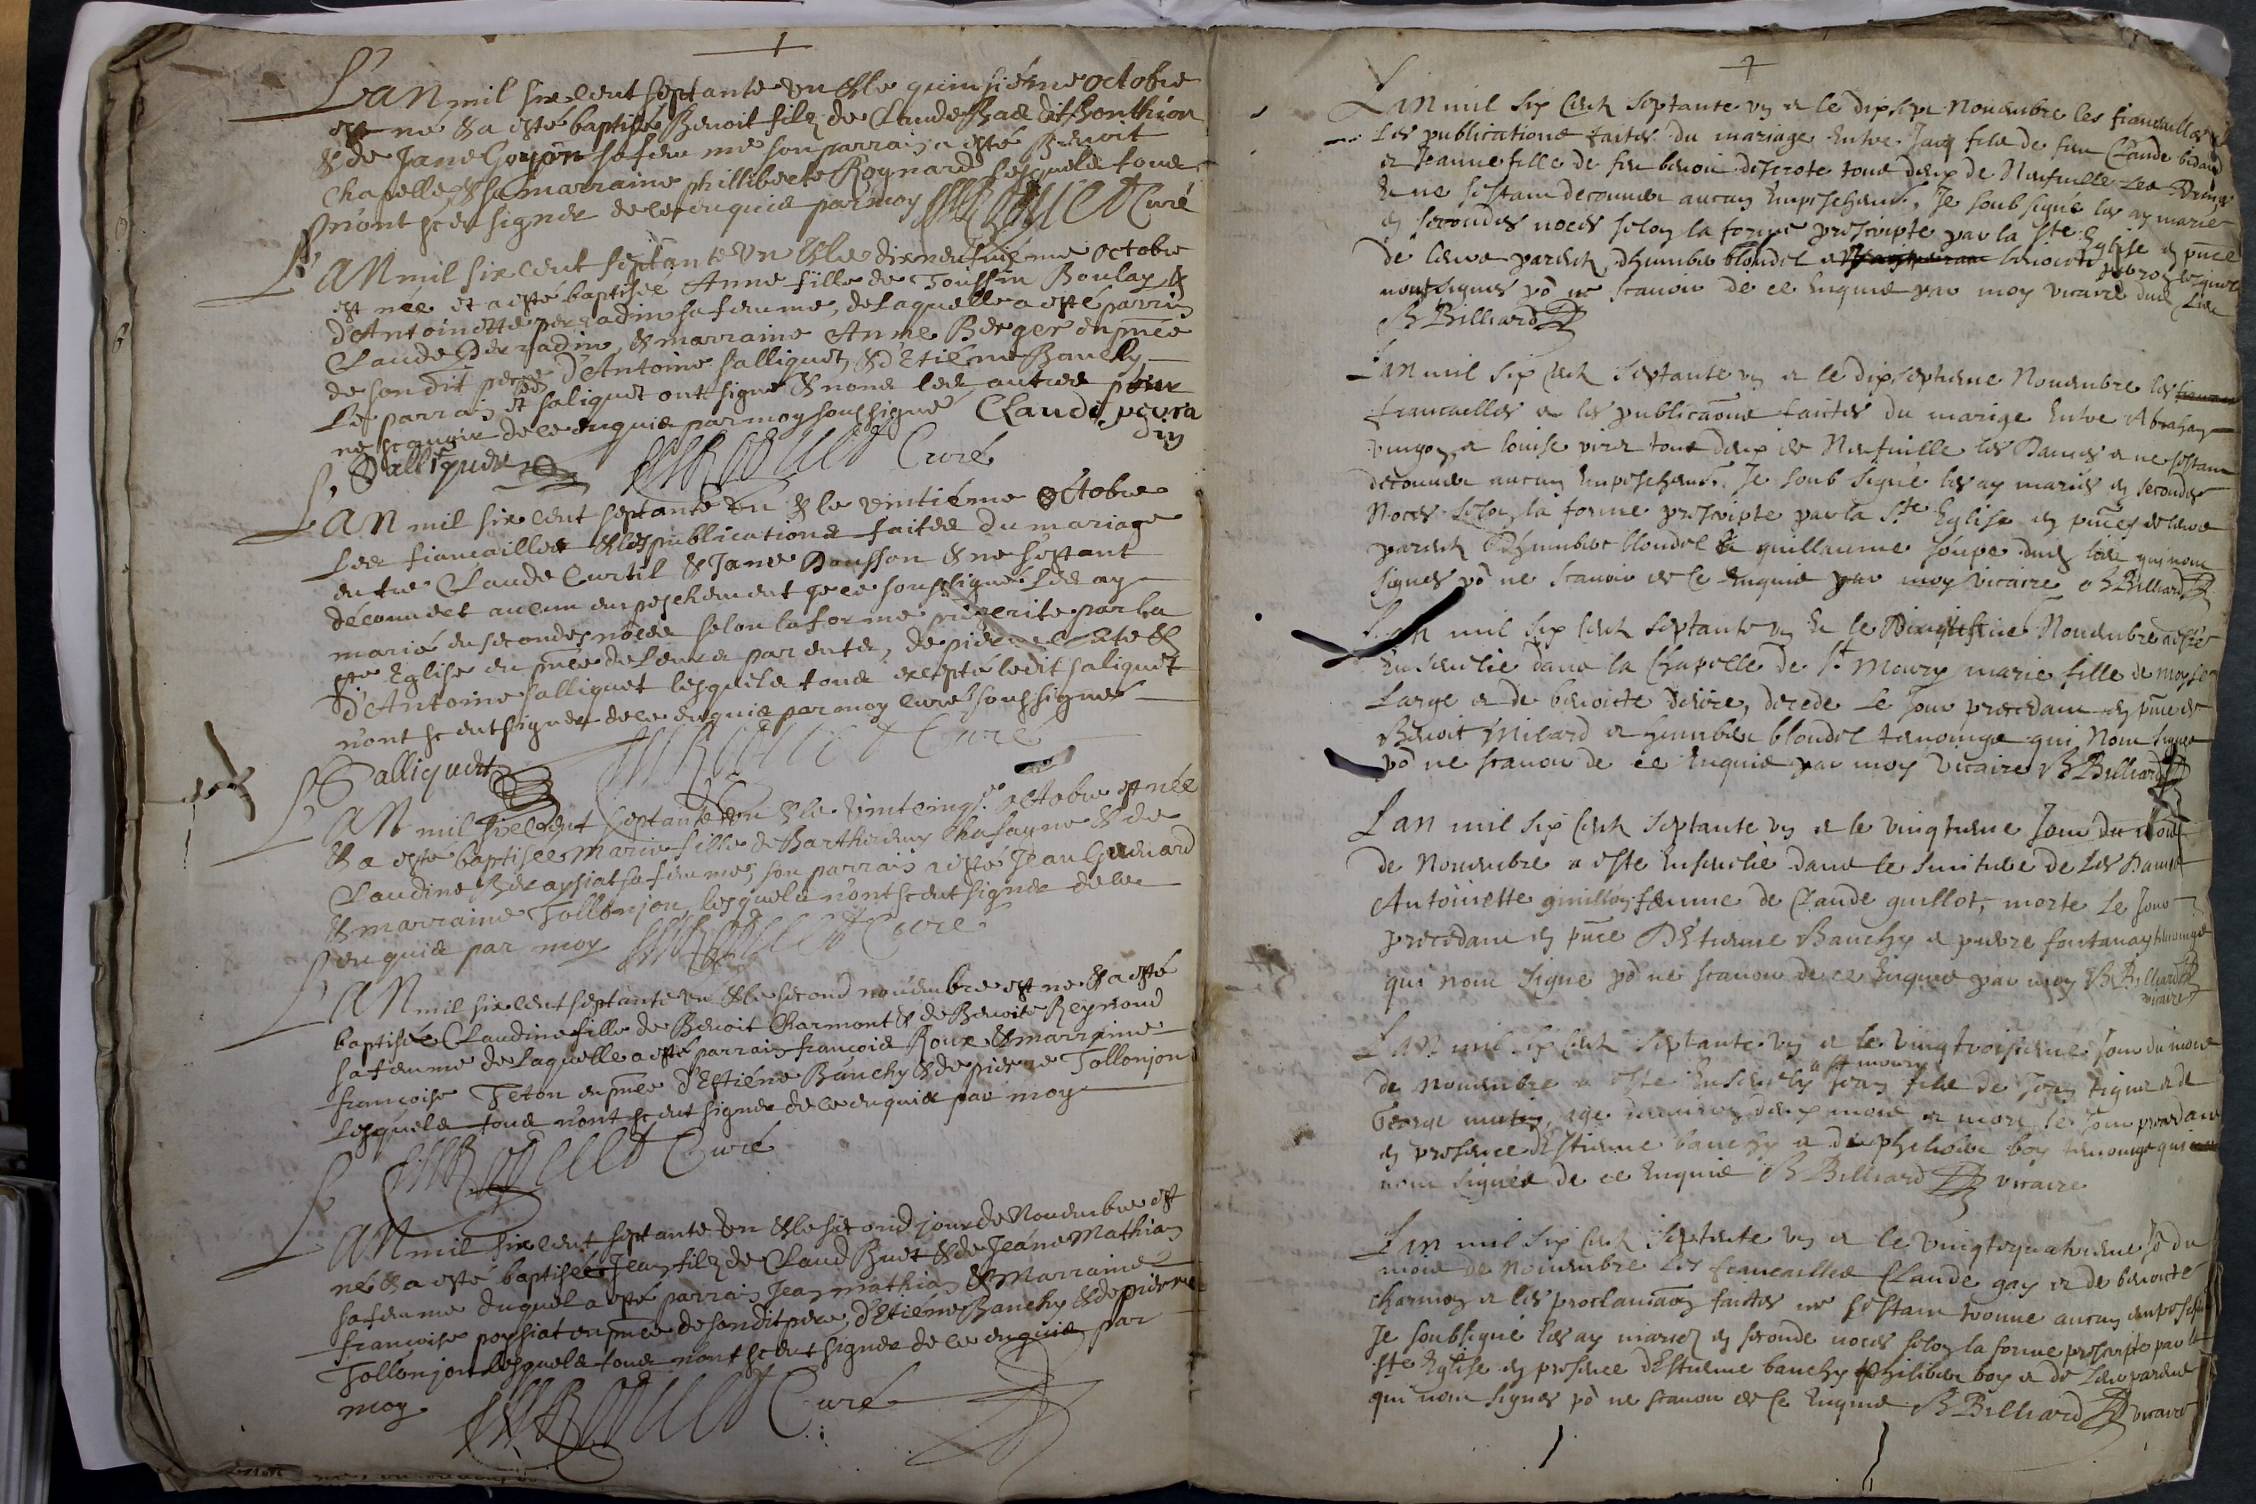 L'an mil six cent septante un & le quinsiéme octobre
est né & a esté baptisé Benoit filz de Claude
& de Jane Gonjon sa femme son parrain a esté Benoit
Chapelle, & sa marraine philliberte Rognard lesquels tous
n'ont sceu signer de ce enquis par moy Curé
L'an mil six cent septante un & le dixneufuiéme octobre
est née et a esté baptisée Anne fille de Toussin Boulay &
d'Antoinette sa femme, de laquelle a esté parrin
Claude & marraine Anne Berger en pñce
de son dit pere d'Antoine salliquet, & d'Etiéne Banchy
Le parrain et saliquet ont signé & nons les autres pour
ne scauoir de ce enquis par moy soussigné Claude peyra
din
Salliquet Curé
L'an mil six cent septante un & le vintiéme octobre
Les fiancailles & les publications faites du mariage
entre Claude Curtil & Jane Dousson & ne s'estant
décounert aucun enpeschement je ce soussigné les ay
marié en secondes noces selon la forme prescrite par la
ste Eglise en pñce de leurs parents, de pierre &
d'Antoine salliquet lesquels tous excepté ledit saliquet
n'ont sceut signer de ce enquis par moy curé soussigné
Salliquet Curé
L'an mil six cent septante un & le vintcinq.e octobre est née
& a esté baptisée Marie fille de Barthelemy Chasagne & de
Claudine sa femme, son parrain a esté Jean Guenard
& marraine Tollonjon, lesquels n'ont sceut signer de ce
enquis par moy Curé
L'an mil six cent septante un & le second nouembre est ne & a esté
baptisée Claudine fille de Benoit Charmont & de Benoite Reymond
sa femme de laquelle a esté parrain francois Roux & marraine
francoise Teton en pñce d'Estiéne Banchy & de pierre Tollonjon
Lesquels tous n'ont sceut signer de ce enquis par moy
Curé
L'an mil six cent septante un & le second jour de Nouembre est
né & a esté baptisé Jean filz de Claud Buet & de Jeane Mathian
sa femme duquel a esté parrain Jean mathian & Marraine
francoise poysiat en pñce de son dit pere, d'Etiéne Banchy & de pierre
Tollonjon lesquels tous n'ont sceut signer de ce enquis par
moy Curé
L'an mil six cent septante un et le dixsept Nouembre les fiancailles
Les publications faites du mariage entre Jaq fils de feu Claude
et Jeanne fille de feu benoit tous deux de Neufuille les Dames
& ne s'estant decouuer aucun Empeschem.t, Je soub signé les ay mariés
en secondes noces selon la forme prescripte par la ste Eglise en pñce
de leurs parents, d'humber blondel et benoist
nont signes po ne scauoir de ce Enquis par moy vicaire dud Lieu
B Billiard
L'an mil six cent septante un et le dixseptieme Nouembre les
fiancailles et les publicaõns faites du marige Entre Abraham
et louise tous deux de Neufuille les Dames et ne sestant
decouuer aucun Empeschem.t Je soub signé les ay mariés en secondes
Noces selon la forme prescripte par la ste Eglise en pñce de leurs
parents d'humber blondel & guillaume soupe dud lieu qui nont
signes po ne scauoir de ce Enquis par moy vicaire B Billiard
L'an mil six cent septante un & le Nouembre a esté
Enseuelie dans la Chapelle de st Maury marie fille de moyse
Large et de benoiste, decede le jour precedant en pñce de
Benoit Milard et humber blondel temoings qui Nont signes
po ne scauoir de ce Enquis par moy Vicaire B Billiard
L'an mil six cent septante un et le vingtieme Jour du mois
de Nouembre a este Enseuelie dans le simitiere de Les Dames
Antoinette femme de Claude guillot, morte le Jour
precedant en pñce D'Etienne Banchy et pierre fontanay temoings
qui nont signe po ne scauoir de ce Enquis par moy B Billiard
vicaire
L'an mil six cent septante un et le vingtroisieme jour du mois
a st maury
de nouembre a este Enseuely Jean fils de Jean et de
George, age deux mois et mort le jour precedant
en presence d'Estienne banchy et de philiber boy temoings qui
nont signés de ce Enquis B Billiard vicaire
L'an mil six cent septente un et le vingtequatrieme jo du
mois de Nouembre les fiancailles Claude gay et de benoiste
charmon et les proclamaõns faittes ne s'estant trouue aucun
Je soubsigné les ay mariez en seconde noces selon la forme prescripte par la
ste Eglise en presence d'Estienne banchy philiber boy et de Leur parens
qui nont signes po ne scauoir de ce Enquis B Billiard vicaire